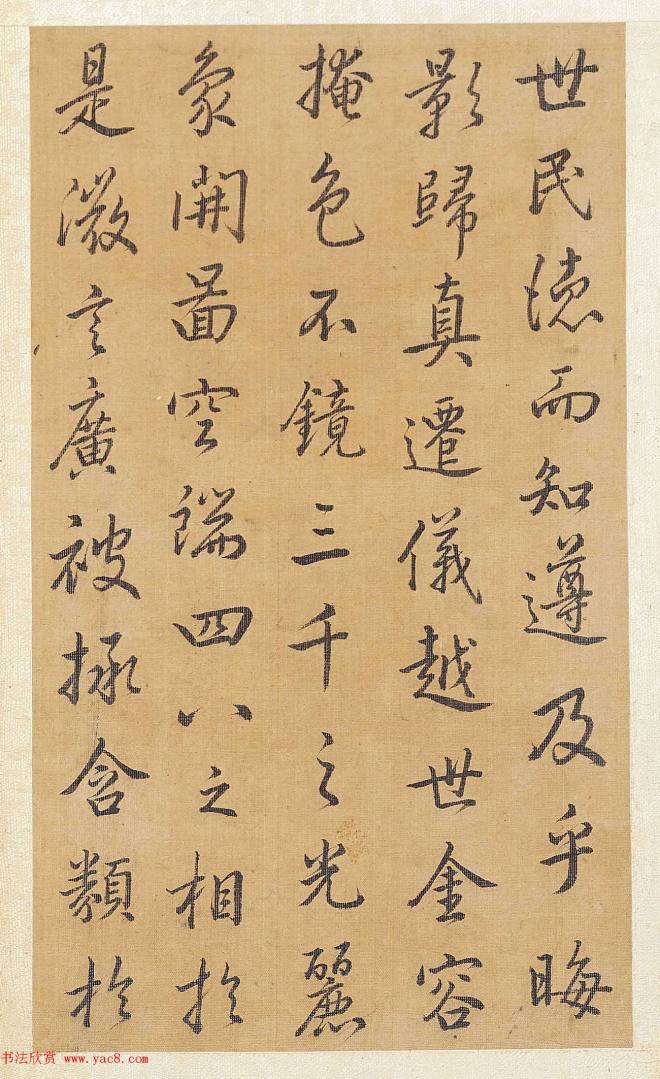 世民德而知遵及乎晦
影歸真遷儀越世金容
掩色不鏡三千之光麗
象開啚空端四八之相於
是微言廣被拯含類於
书法欣赏 www.yac8.com